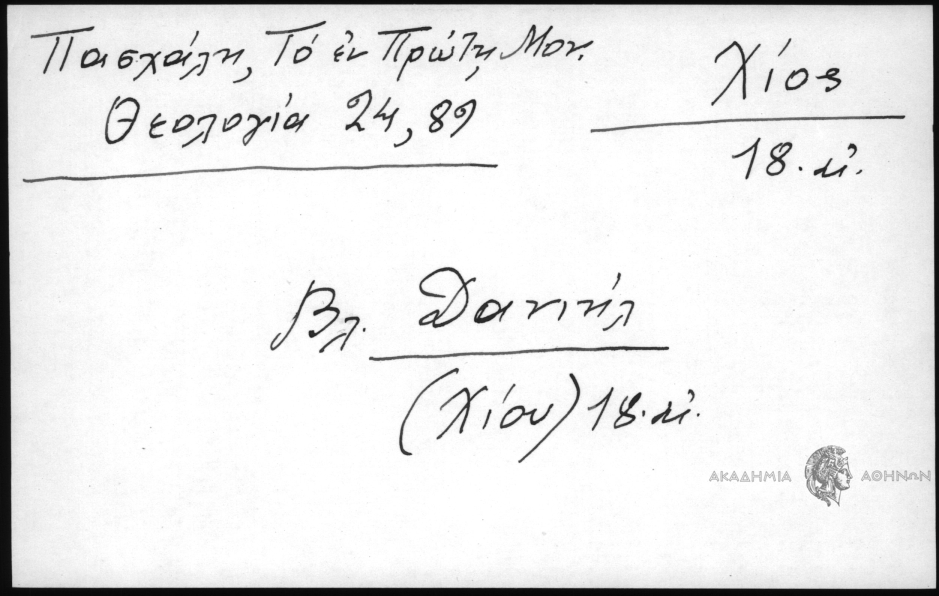 Πασχάλη, Τό ἐν Πρώτῃ Μον.
Θεολογία 24, 89
Χίος
18. μ.
Βλ. Δανιήλ
(Χίου) 18. μ.
ΑΚΑΔΗΜΙΑ ΑΘΗΝΩΝ